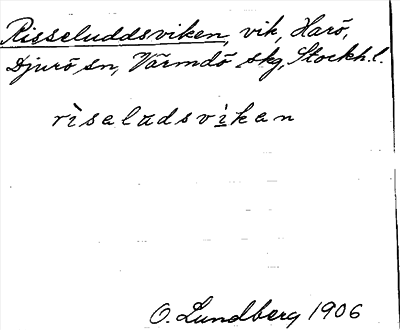 Risseluddsviken, vik, Harö,
Djurö sn, Värmdö skg, Stockh. l.
rìseludsvikan
O. Lundberg 1906